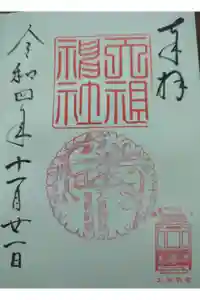 奉拝
天祖
神社
令和四年十一月廿一日